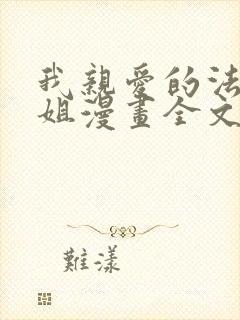 我親愛的法
姐漫畫全文
難漾